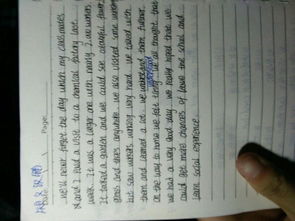 Page:
We'll never forget the day when my classmates
and I paid a visit to a chemical factory last
week. It was a large one with nearly 7,000 workers
It looked a garden and we could see colourful flowers
grass and trees anywhere. We also visited some workshops
but saw workers working very hard. We talked with
them and learned a lot. We understand them further.
On the way to home we felt tiring. We all thought this
we had a very good day. We really hoped that we
could get more chances of leave the school and
learn social experience.